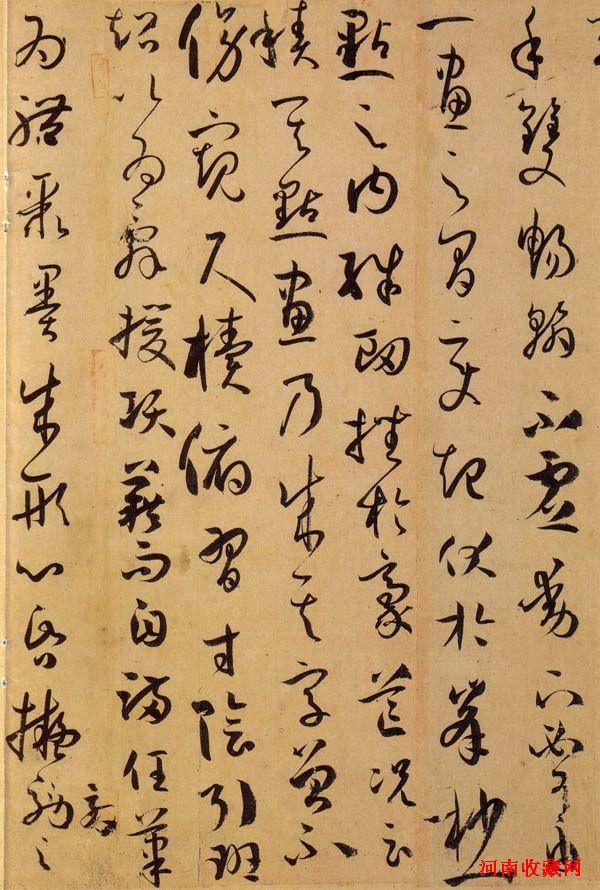 手雙暢翰不虛動下必有由
一畫之間變起伏於峯杪一
點之內殊衄挫於豪芒況云
積其點畫乃成其字曾不
傍窺尺牘俯習寸陰引班
超以為辭援項籍而自滿任筆
為體聚墨成形心昏擬效之
河南收藏网